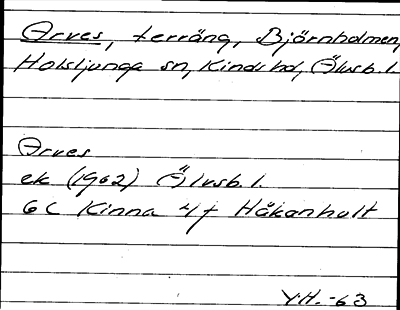 Arves, terräng, Björnholmen,
Holsljunga sn, Kinds hd, Älvsb. l.
Arves
ek (1962) Älvsb. l.
6C Kinna 4f Håkanhult
YH. -63